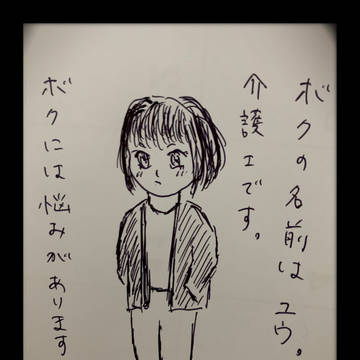 ボクの名前はユウ。
介護士です。
ボクには悩みがあります